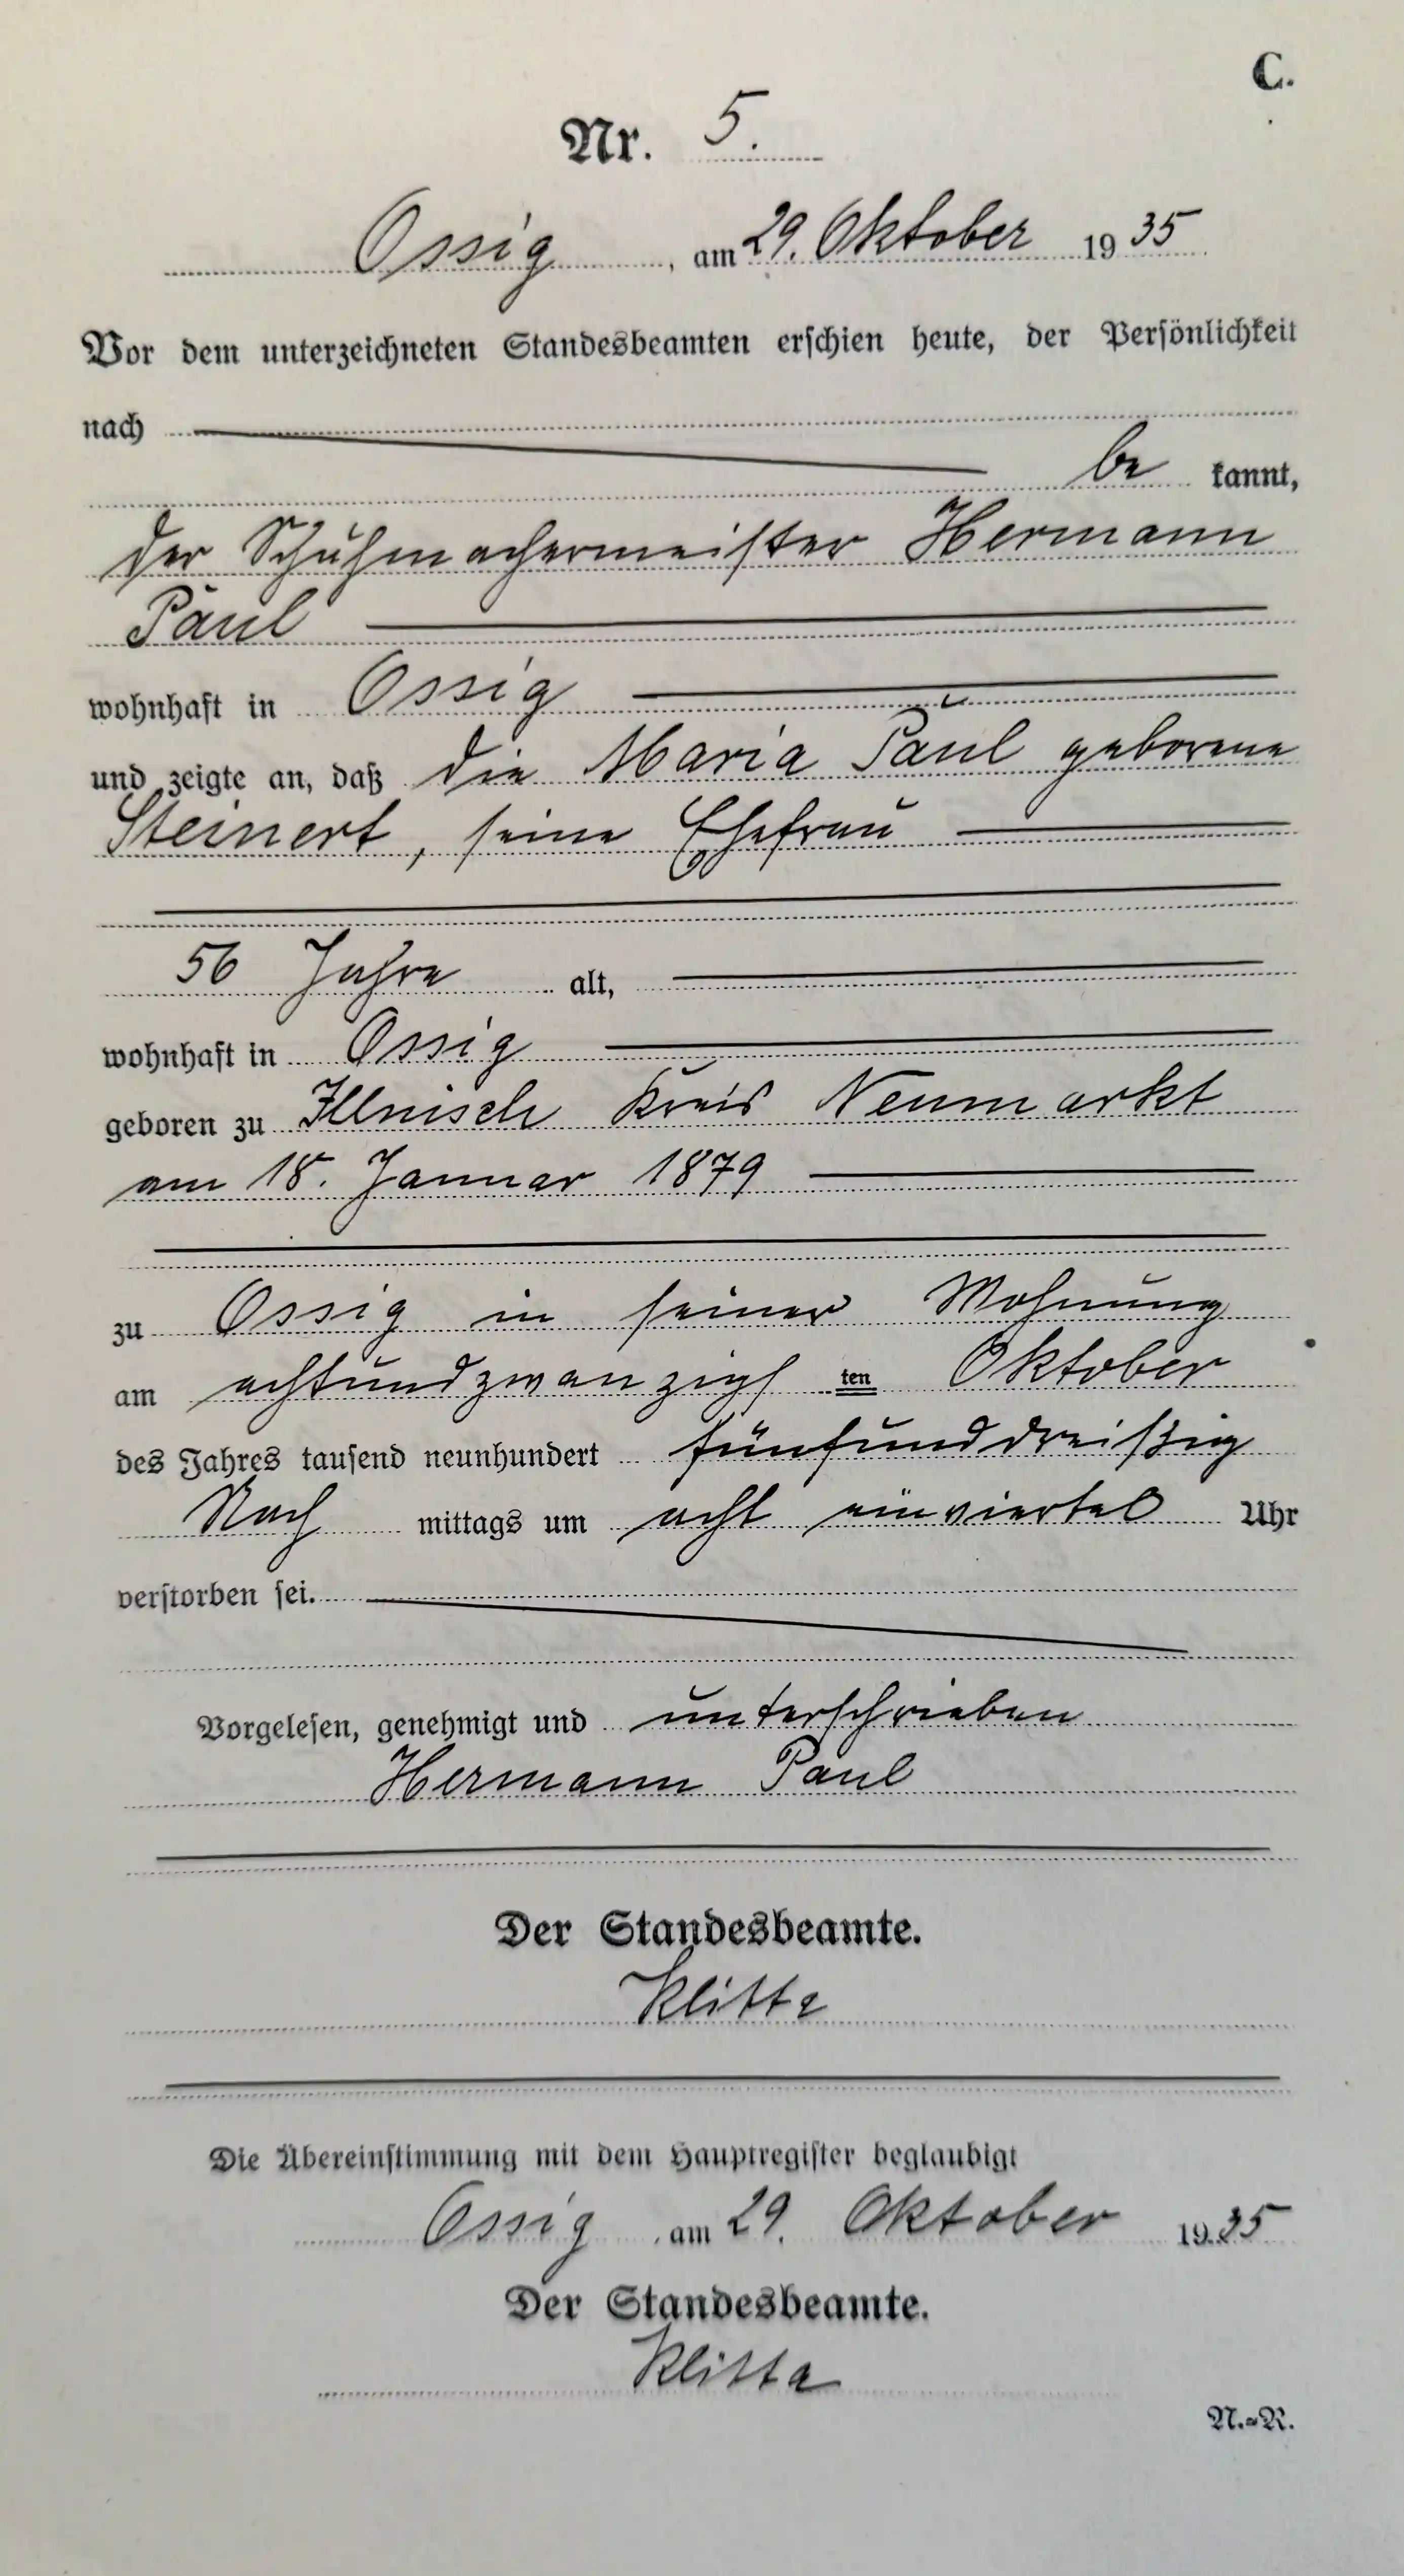 C.
Nr. 5.
Ossig, am 29. Oktober 1935
Vor dem unterzeichneten Standesbeamten erschien heute, der Persönlichkeit
nach
be kannt,
der Schuhmachermeister Hermann
Paul
wohnhaft in Ossig
und zeigte an, daß die Maria Paul geborene
Steinert, seine Ehefrau
56 Jahre alt,
wohnhaft in Ossig
geboren zu Illnisch Kreis Neumarkt
am 18. Januar 1879
zu Ossig in seiner Wohnung
am achtundzwanzigsten Oktober
des Jahres tausend neunhundert fünfunddreißig
Nach mittags um acht einviertel Uhr
verstorben sei.
Vorgelesen, genehmigt und unterschrieben
Hermann Paul
Der Standesbeamte.
Klitte
Die Übereinstimmung mit dem Hauptregister beglaubigt
Ossig, am 29. Oktober 1935
Der Standesbeamte.
Klitte
N.=R.